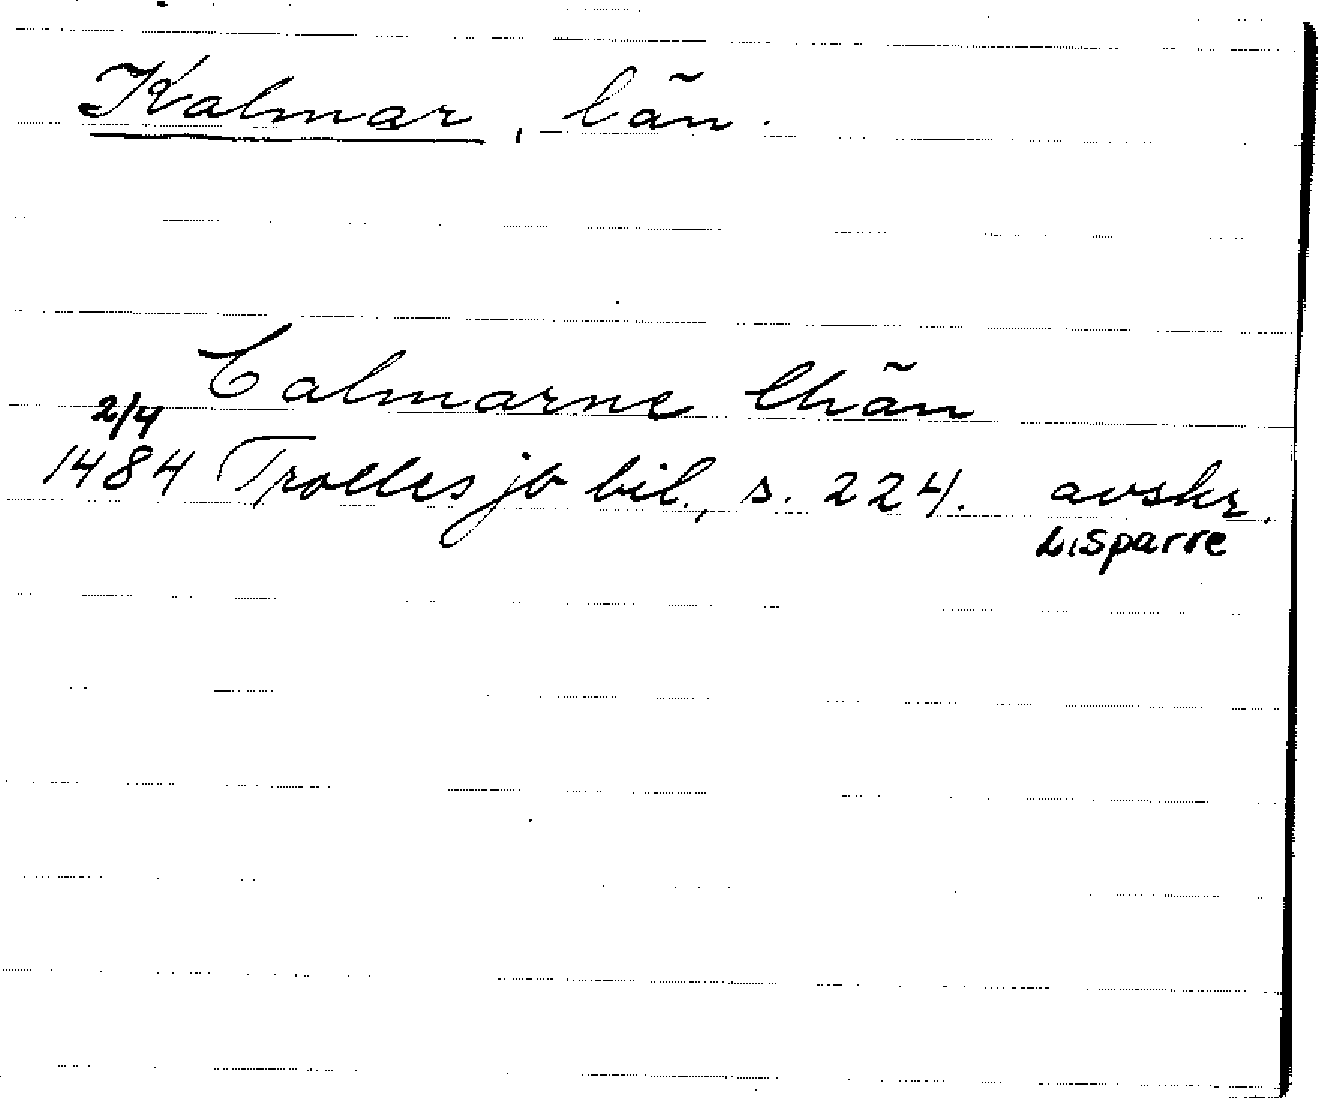 Kalmar, län.
Calmarne lhän
2/4
1484 Trolles jb bil., s. 224. avskr.
L. Sparre